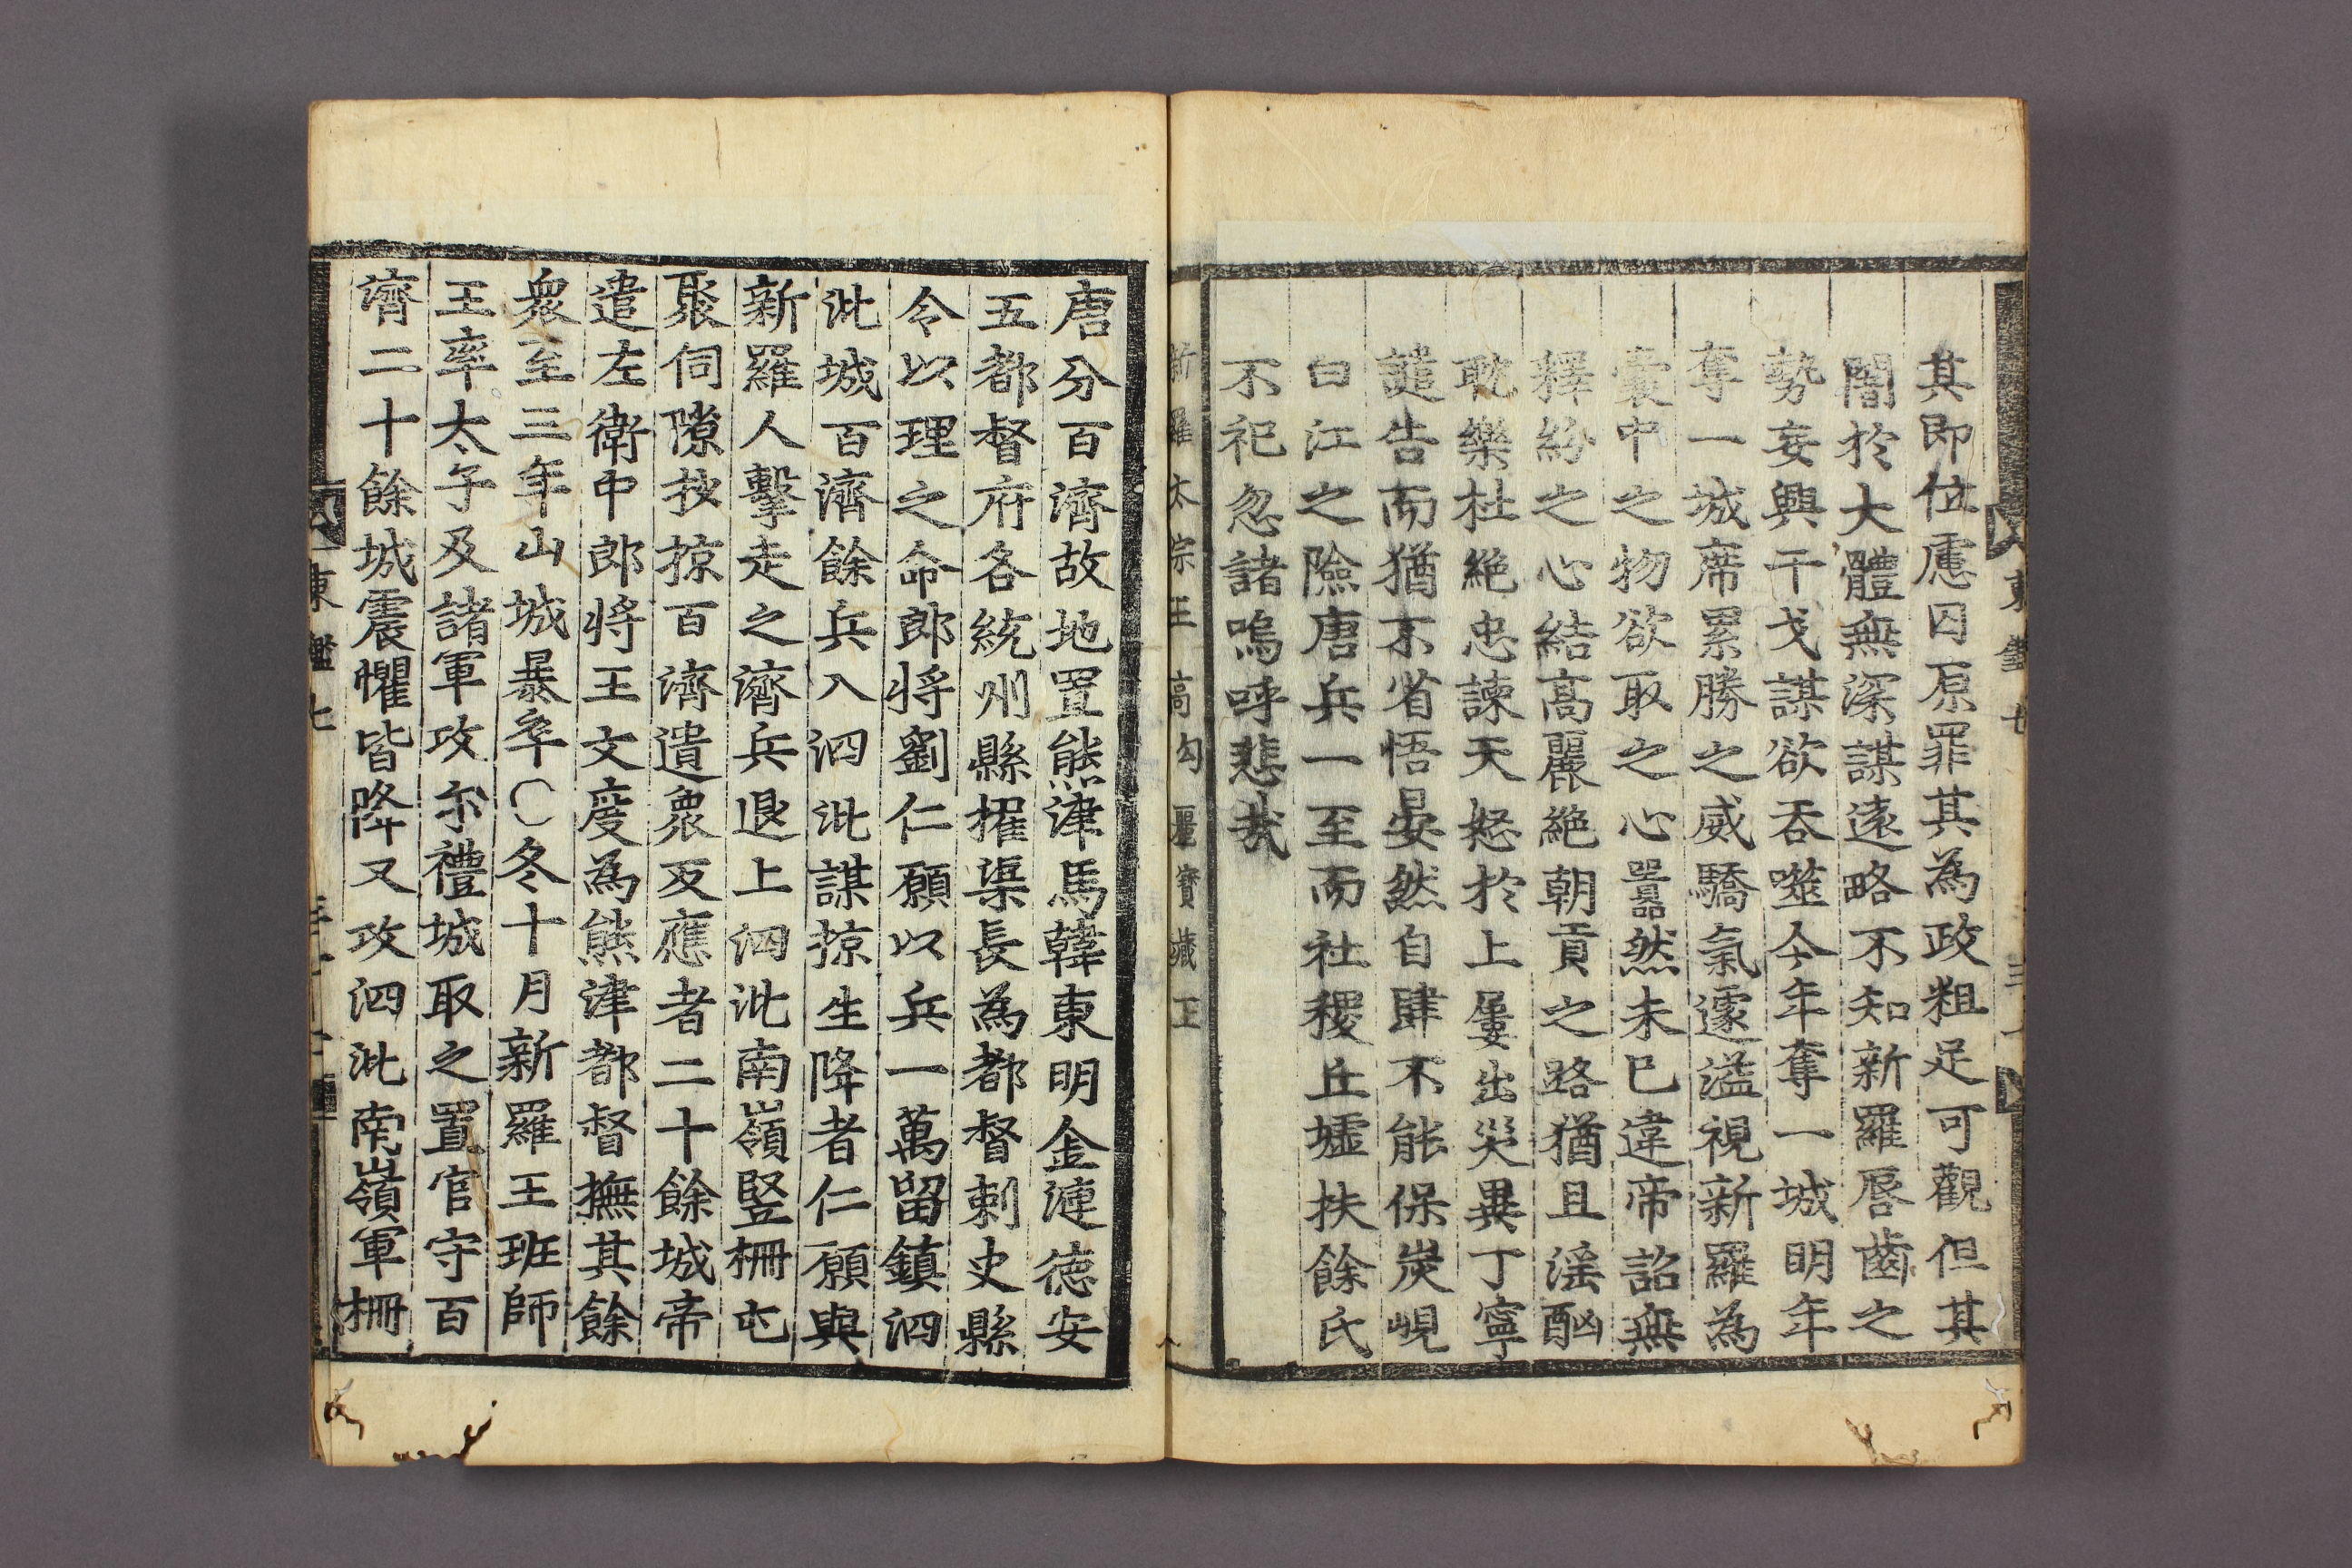 其即位慮囚原罪其為政粗足可觀但其
闇於大體無深謀遠略不知新羅唇齒之
勢妄興干戈謀欲吞噬今年奪一城明年
奪一城席累勝之威驕氣遽溢視新羅為
囊中之物欲取之心嚣然未已違帝詔無
釋紛之心結高麗絶朝貢之路猶且滛酗
耽樂杜絶忠諫天怒於上屢出災異丁寧
譴告而猶不省悟晏然自肆不能保炭峴
白江之險唐兵一至而社稷丘墟扶餘氏
不祀忽諸嗚呼悲哉
新羅太宗王 高句麗寶藏王
唐分百濟故地置熊津馬韓東明金漣德安
五都督府各統州縣擢渠長為都督刺史縣
令以理之命郎將劉仁願以兵一萬留鎮泗
沘城百濟餘兵入泗沘謀掠生降者仁願與
新羅人擊走之濟兵退上泗沘南嶺竪柵屯
聚伺隙抄掠百濟遺衆反應者二十餘城帝
遣左衛中郎將王文度為熊津都督撫其餘
衆至三年山城暴卒〇冬十月新羅王班師
王率太子及諸軍攻尒禮城取之置官守百
濟二十餘城震懼皆降又攻泗沘南嶺軍柵
東鑑七